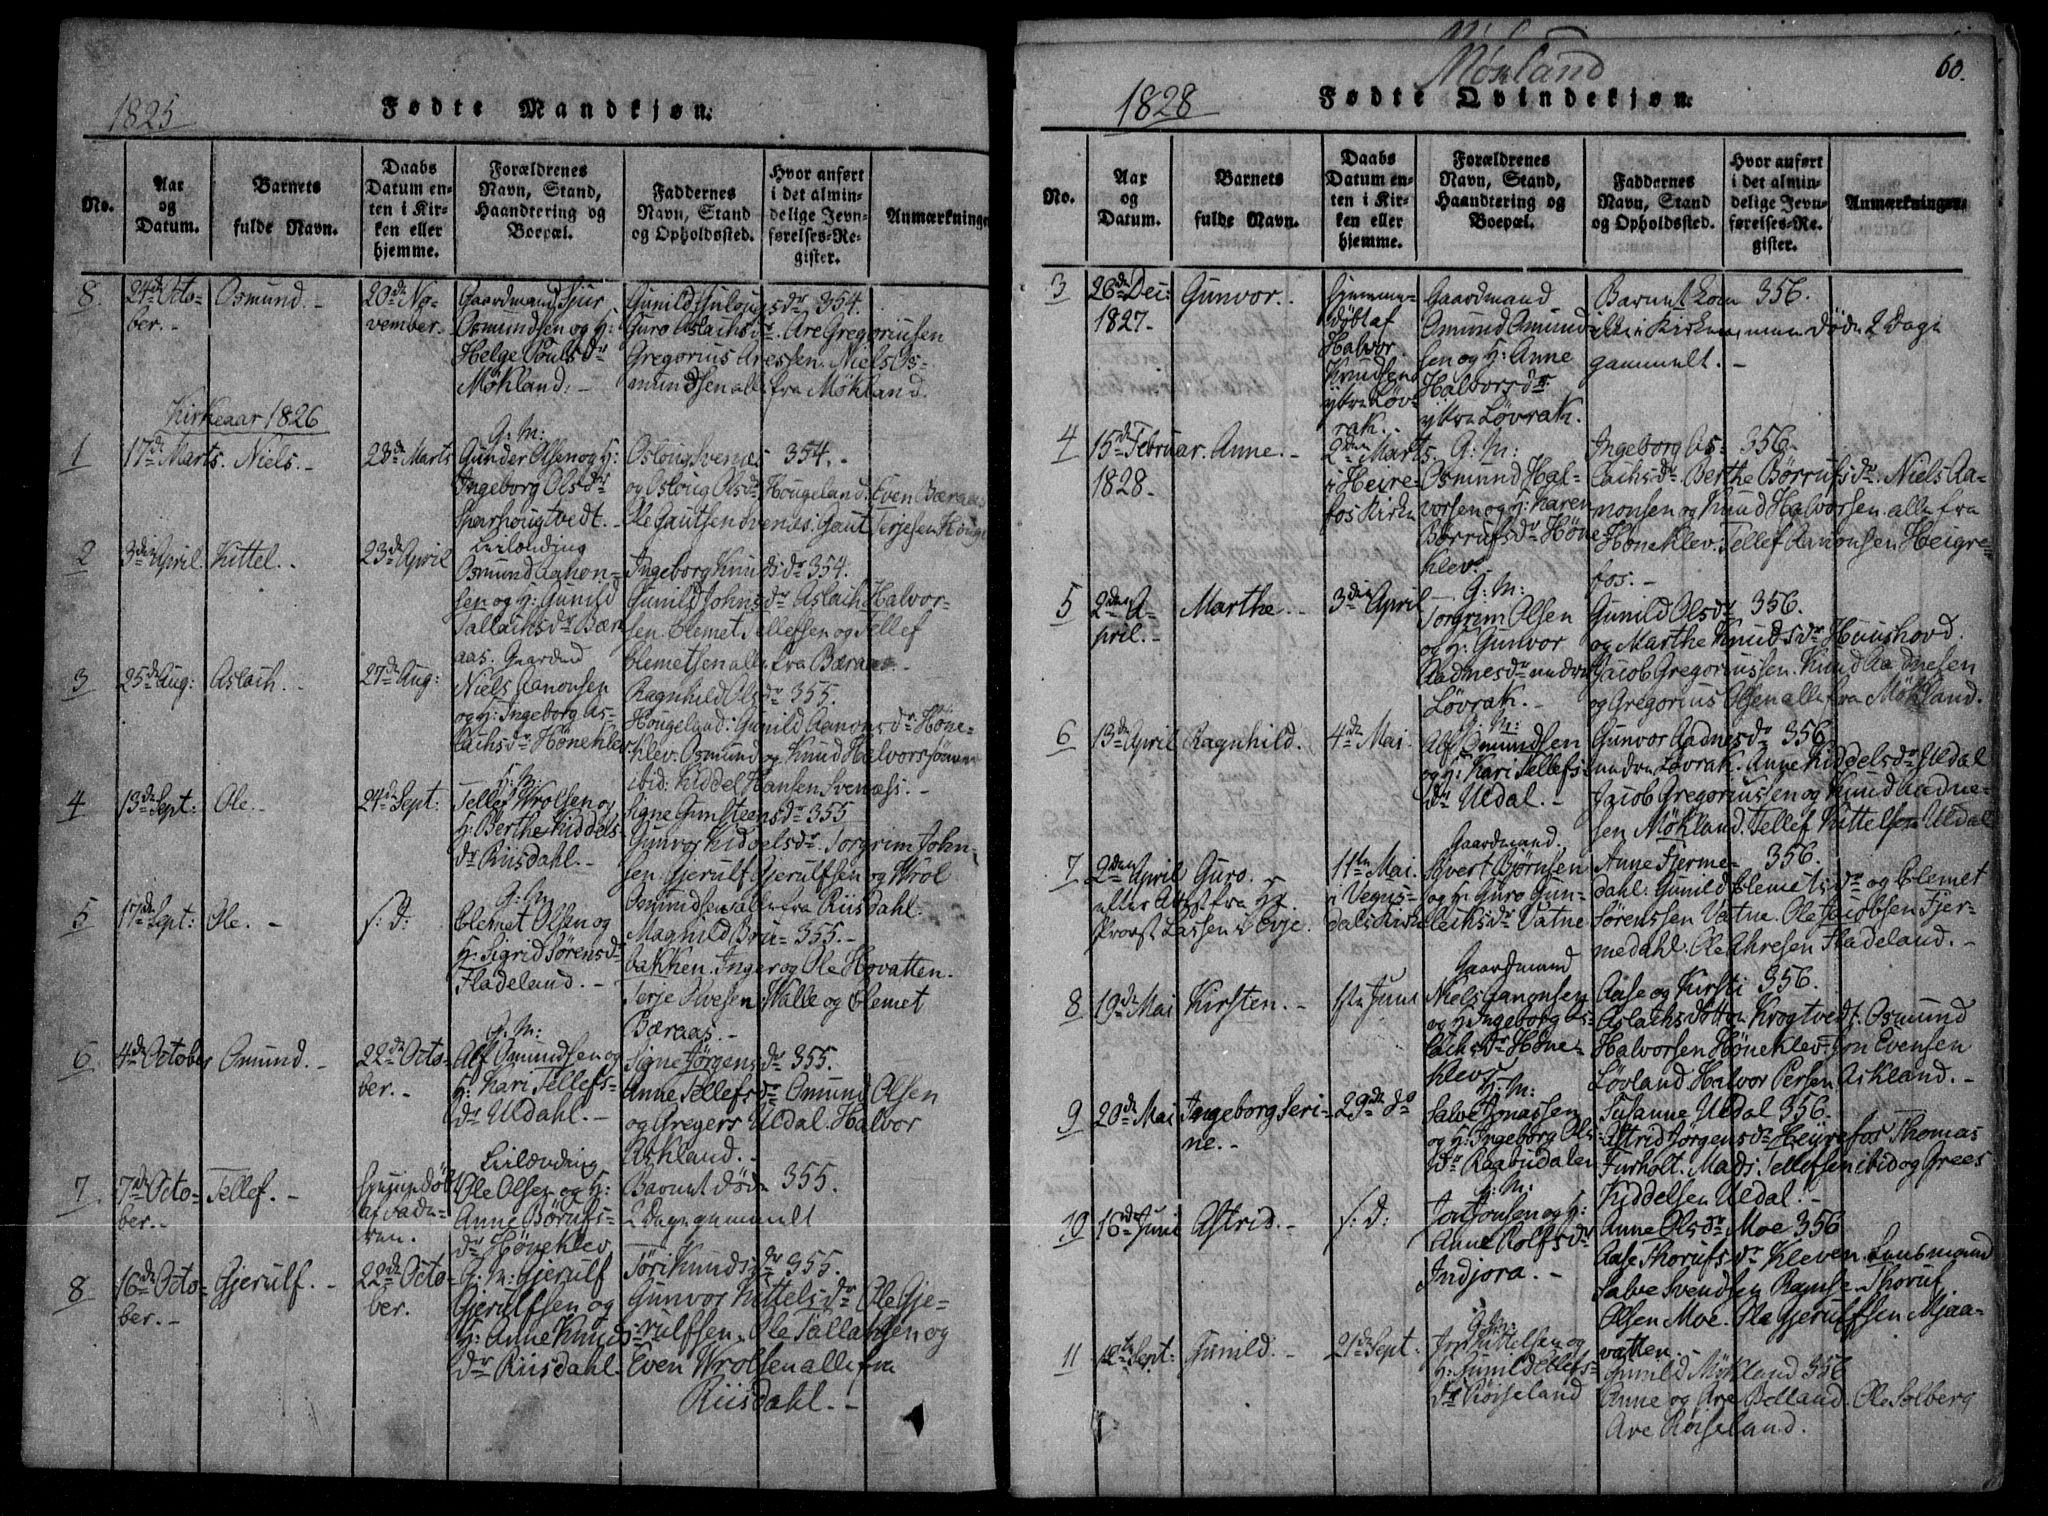 1825
Fødte Mandkjøn:
No.
Aar og Datum.
Barnets fulde Navn.
Daabs Datum enten i Kirken eller hjemme.
Forældrenes Navn, Stand, Haandtering og Boepæl.
Faddernes Navn, Stand og Opholdssted.
Hvor anført i det almindelige Jevnførelses-Register.
Anmærkninger
8. 24de Octo-
ber.-
Osmund.-
20de No-
vember.-
Gaardmand Sjur
Osmundsen og H:
Helge Pouls dr
Møkland.-
354.
Guro Aslachsdr. Are Gregoriusen
Gregorius Aresen. Niels Os-
mundsen alle fra Møkland.
Kirkeaar 1826
1 17de Marts. Niels.- 23de Marts
G: M:
Gunder Olsen og H:
Ingeborg Olsdr
Sparhougtvedt.-
Osloug Svenæs 354.-
og Osloug Olsdr Hougeland. Even Bæraas
Ole Gautsen Svenæs. Gaut Terjesen
2 3die April Kittel.- 23de April
Leilænding
Osmund Aanon-
sen og H: Gunild
Tallachsdr Bær
aas.
Ingeborg Knudsdr 354.
Gunild Johnsdr Aslach Halvor-
sen. Clemet Tellefsen og Tellef
Clemetsen alle fra Bæraas.-
3 25de Aug: Aslach.- 27de Aug:
Gaardmd
Niels Aanonsen
og H: Ingeborg As-
lachsdr Hönekler
Ragnhild Olsdr 355.
Hougeland. Gunild Aanonsdr Höne-
klev. Osmund og Knud Halvorsønner
ibid: Kiddel Hansen Svenæss.-
4 13de Sept: Ole.- 24de Sept:
G: M:
Tellef Wrolsen og
H: Berthe Kiddels-
dr Riisdahl.-
Signe Gunsteensdr 355
Gunvor Kiddelsdr. Torgrim John-
sen. Gjerulf Gjerulfsen og Wrol
Osmundsen alle fra Riisdahl.
5 17de Sept: Ole.- s: d:
G: M:
Clemet Olsen og
H: Sigrid Sørensdr
Fladeland.-
Magnild Bru- 355.-
bakken. Inger og Ole Hovatten.
Terje Olvesen Walle og Clemet
Bæraas.-
6 4de October Omund.- 22de Octo-
ber.-
G: M:
Alf Omundsen og
H: Kari Tellefs-
dr Uldahl.-
Signe Jørgensdr 355.
Anne Tellefsdr Omund Olsen
og Gregers Uldal. Halvor
Askland.-
7. 7de Octo-
ber.-
Tellef.-
Hjemmedöbt
af Fade-
ren.
Leilænding
Ole Olsen og H:
Anne Börufs-
dr Høneklev
Barnet døde 355.
2 Dage gammelt
8 16de Octo-
ber.-
Gjerulf.-
22de Octo-
ber.
G: M: Gjerulf
Gjerulfsen og
H: Anne Knuds
dr Riisdahl.
Töri Knudsdr 355.
Gunvor Kittelsdr Ole Gje-
rulfsen. Ole Tallaksen og
Even Wrolsen alle fra
Riisdahl.-
Møkland
60.
1828
Fødte Qvindekjøn:
No.
Aar og Datum.
Barnets fulde Navn.
Daabs Datum enten i Kirken eller hjemme.
Forældrenes Navn, Stand, Haandtering og Boepæl.
Faddernes Navn, Stand og Opholdssted.
Hvor anført i det almindelige Jevnførelses-Register.
Anmærkninger.
3 26de Dec:
1827.-
Gunvor.-
Hjemme-
døbt af
Halvor
Knudsen
ytre Løv-
rak.-
Gaardmand
Osmund Omund-
sen og H: Anne
Halvorsdr
ytre Løvrak.
Barnet kom 356.
ikke i Kirken, men døde 2 Dage
gammelt.-
4 15de Februar
1828.-
Anne.-
2den Marts
i Heire-
fos Kirke
G: M:
Osmund Hal-
vorsen og H: Karen
Börrufsdr Höne-
klev.-
Ingeborg As- 356.
lachsdr Berthe Börrufsdr. Niels Aa-
nonsen og Knud Halvorsen alle fra
Höneklev. Tellef Aanonsen Heigre-
fos.-
5 2den A-
pril.-
Marthe.- 3die April
G: M:
Torgrim Olsen
og H: Gunvor
Aadnesdr nedre
Løvrak.-
Gunild Olsdr 356.
og Marthe Knudsdr Huushovd.
Jacob Gregoriussen. Knud Aadnesen
og Gregorius Olsen alle fra Møkland.
6 13de April Ragnhild. 4de Mai.
G: M:
Alf Omundsen
og H: Kari Tellefs-
dr Uldal.-
Gunvor Aadnesdr 356
nedre Løvrak. Anne Kiddelsdr Uldal
Jacob Gregoriussen og Knud Aadne-
sen Møkland. Tellef Kittelsen Uldal
7 2den April Guro. 11te Mai.
efter Attest fra Hr.
Provst Lassen i Evje.
i Vegus-
dals Kirke
Gaardmand
Sivert Bjørnsen
og H: Guro Gun-
leiksdr Vatne
Anne Fjerme- 356.
dahl. Gunild Clemetsdr og Clemet
Sörenssen Vatne. Ole Jacobsen Fjer-
medahl. Ole Ahresen Fladeland.-
8 19de Mai Kirsten.- 1ste Juni
Gaardmand
Niels Aanonsen
og H: Ingeborg As-
lachsdr Höne-
klev
Aase og Kirsti 356.
Aslachsdøttre Krogtvedt. Osmund
Halvorsen Höneklev. Jon Evensen
Lövland. Halvor Persen Askland.-
9 20de Mai Ingeborg Seri-
ne.-
29de do
G: M:
Salve Jonassen
og H: Ingeborg Ols-
dr Raabudalen
Susanne Uldal 356.
Astrid Jørgensdr Heyrefos Thomas
Furholt. Mads Tellefsen ibid og Grees
Kiddelsen Uldal.-
10 16de Juni Astrid.- s: d:
G: M:
Jon Jonsen og H:
Anne Rolfsdr
Indjora.-
Anne Olsdr Moe 356
Aase Thorufsdr Kleven. Lensmand
Salve Svendsen Ramse. Thoruf
Olsen Moe. Ole Gjerulfsen Mjaa-
vatten.-
11 12te Sept: Gunild.- 21de Sept.
G: M:
Jon Kittelsen og
H: Gunild Tellefs-
dr Röiseland
Gunild Møkland 356
Anne og Are Bølland. Ole Solberg
Are Röiseland.